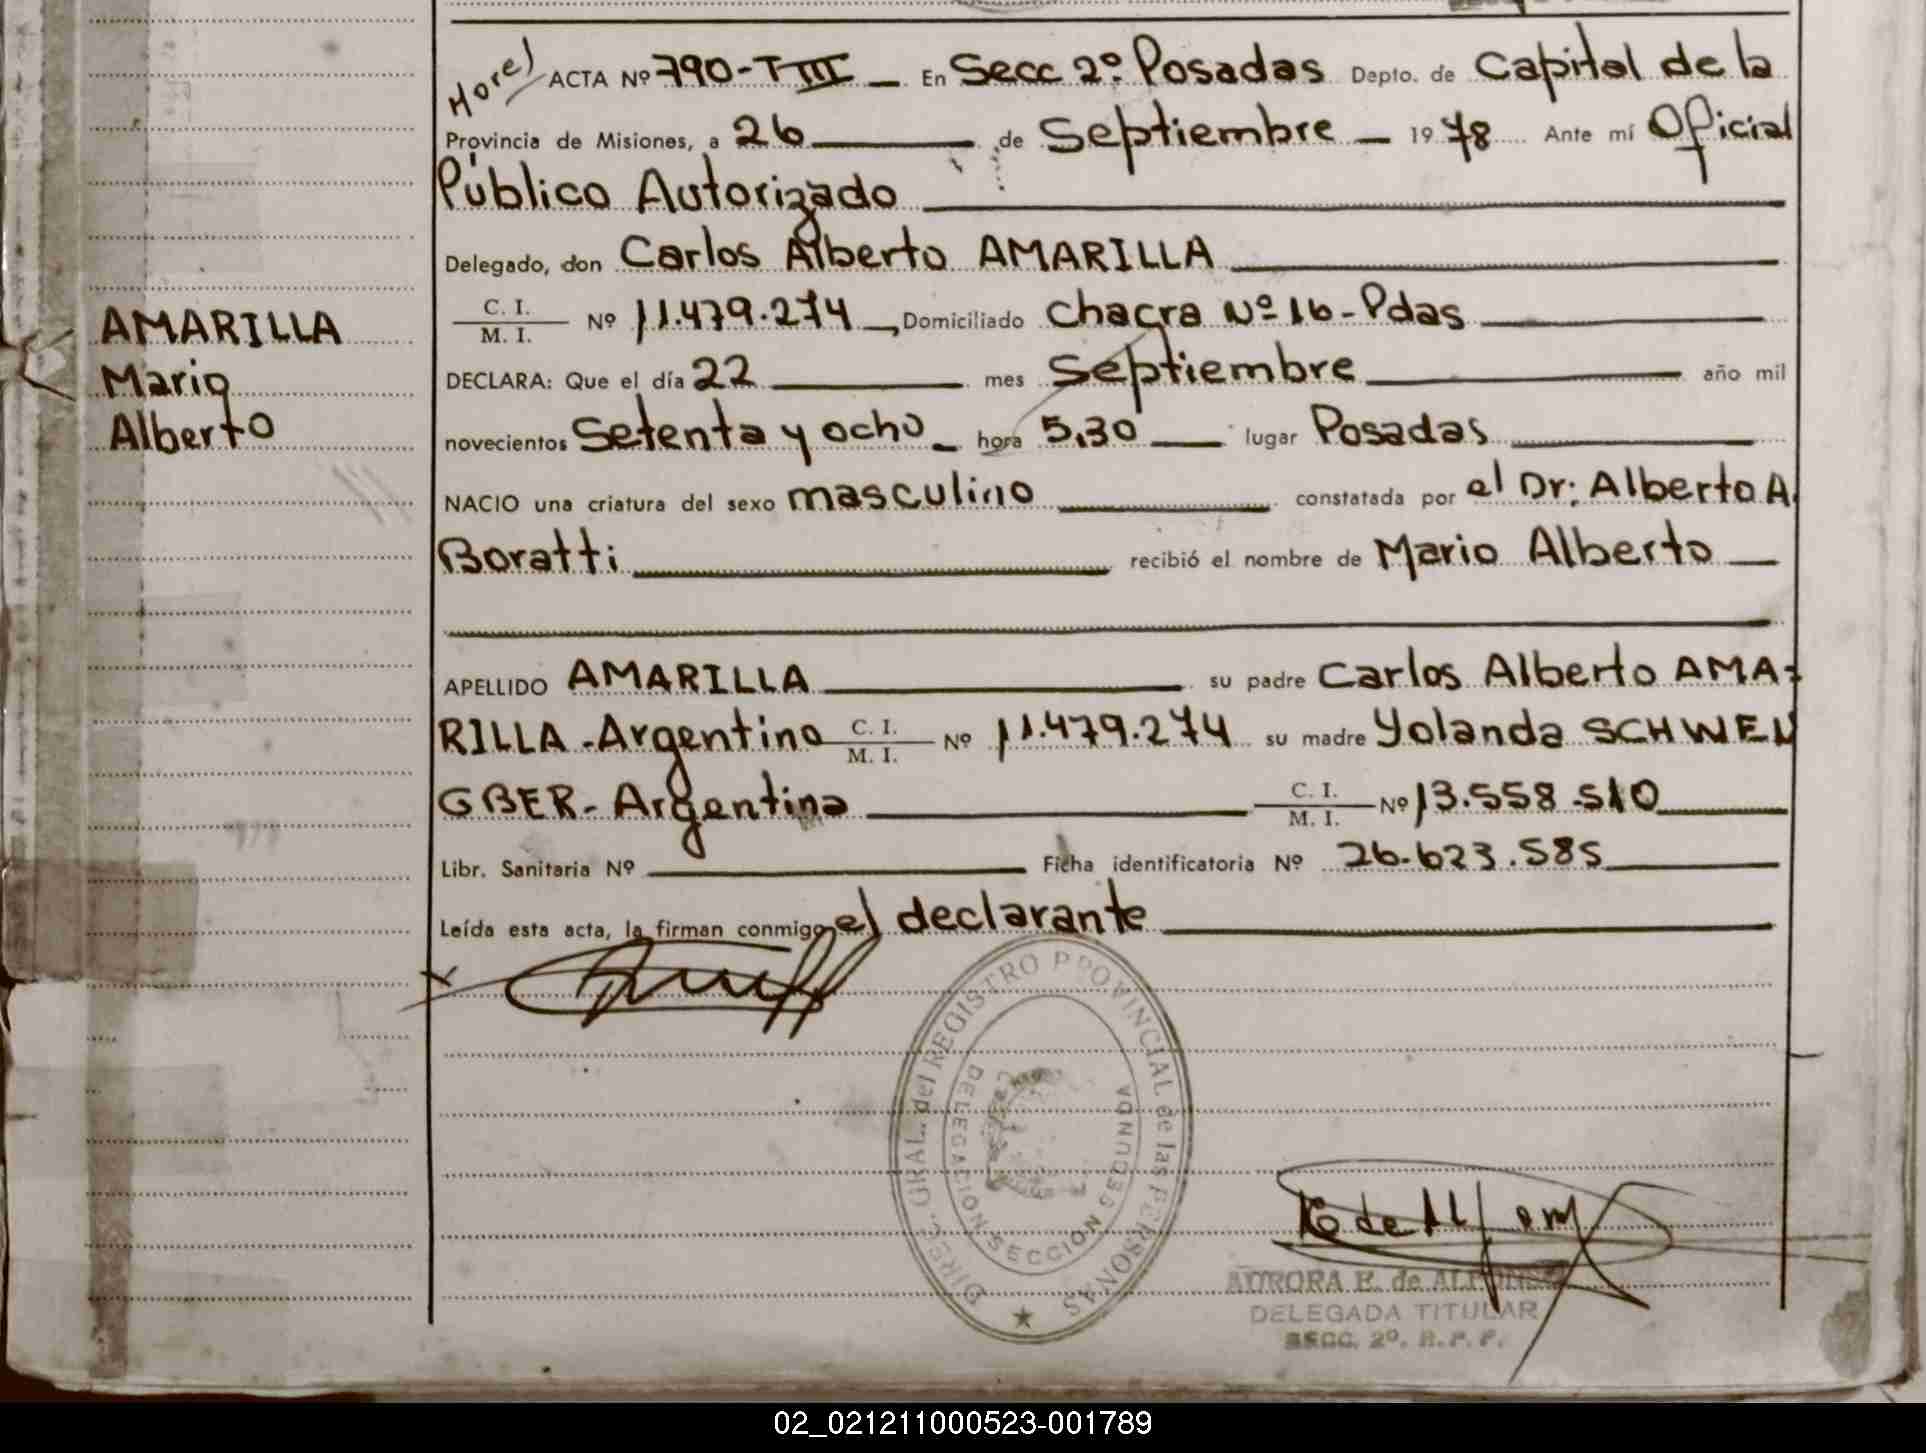 Hore)
ACTA Nº 790-TIII — En Secc 2º. Posadas Depto. de Capital de la
Provincia de Misiones, a 26 — de Septiembre — 1978 Ante mí Oficial
Público Autorizado
Delegado, don Carlos Alberto AMARILLA
C. I.
M. I. Nº 11.479.274 —, Domiciliado Chacra Nº 16 - Pdas
DECLARA: Que el día 22 — mes Septiembre — año mil
novecientos Setenta y ocho — hora 5,30 — lugar Posadas
NACIO una criatura del sexo masculino — constatada por el Dr: Alberto A.
Boratti — recibió el nombre de Mario Alberto —
APELLIDO AMARILLA — su padre Carlos Alberto AMA-
RILLA - Argentino C. I. M. I. Nº 11.479.274 su madre Yolanda SCHWEN
GBER - Argentina — C. I. M. I. Nº 13.558.510
Libr. Sanitaria Nº — Ficha identificatoria Nº 26.623.585
Leída esta acta, la firman conmigo el declarante
AMARILLA
Mario
Alberto
DIREC. GRAL. del REGISTRO PROVINCIAL de las PERSONAS
DELEGACION SECCION SEGUNDA
AURORA E. de ALFONSO
DELEGADA TITULAR
SECC. 2º. R. P. P.
02_021211000523-001789